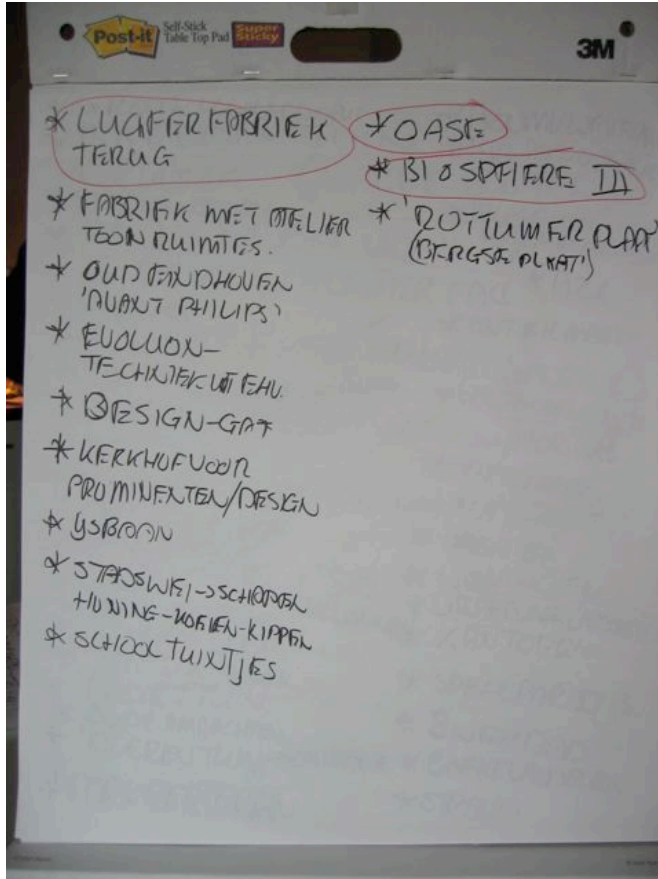 Post-it
Self-Stick
Table Top Pad
Super
Sticky
3M
* LUCIFERFABRIEK
TERUG
* FABRIEK MET ATELIER
TOONRUIMTES.
* OUD EINDHOVEN
'AVANT PHILIPS'
* EVOLUON-
TECHNIEK UIT EHV.
* DESIGN-GAT
* KERKHOF VOOR
PROMINENTEN/DESIGN
* IJSBAAN
* STADSWEI->SCHAPEN
HONING-KOEIEN-KIPPEN
* SCHOOLTUINTJES
* OASE
* BIOSPHERE III
* 'ROTTUMERPLAAT'
(BERGSE PLAAT')